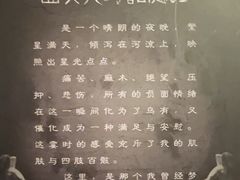 是一个晴朗的夜晚，繁
星满天，倾泻在河凉上，映
照出星光点点。
痛苦、麻木、绝望、压
抑、恐惧，所有的负面情绪
在这一瞬间化为了乌有，又
催化成为一种满足与安慰。
这霎时的感受充斥了我的肌
肤与四肢百骸。
这里，是那个我曾经梦